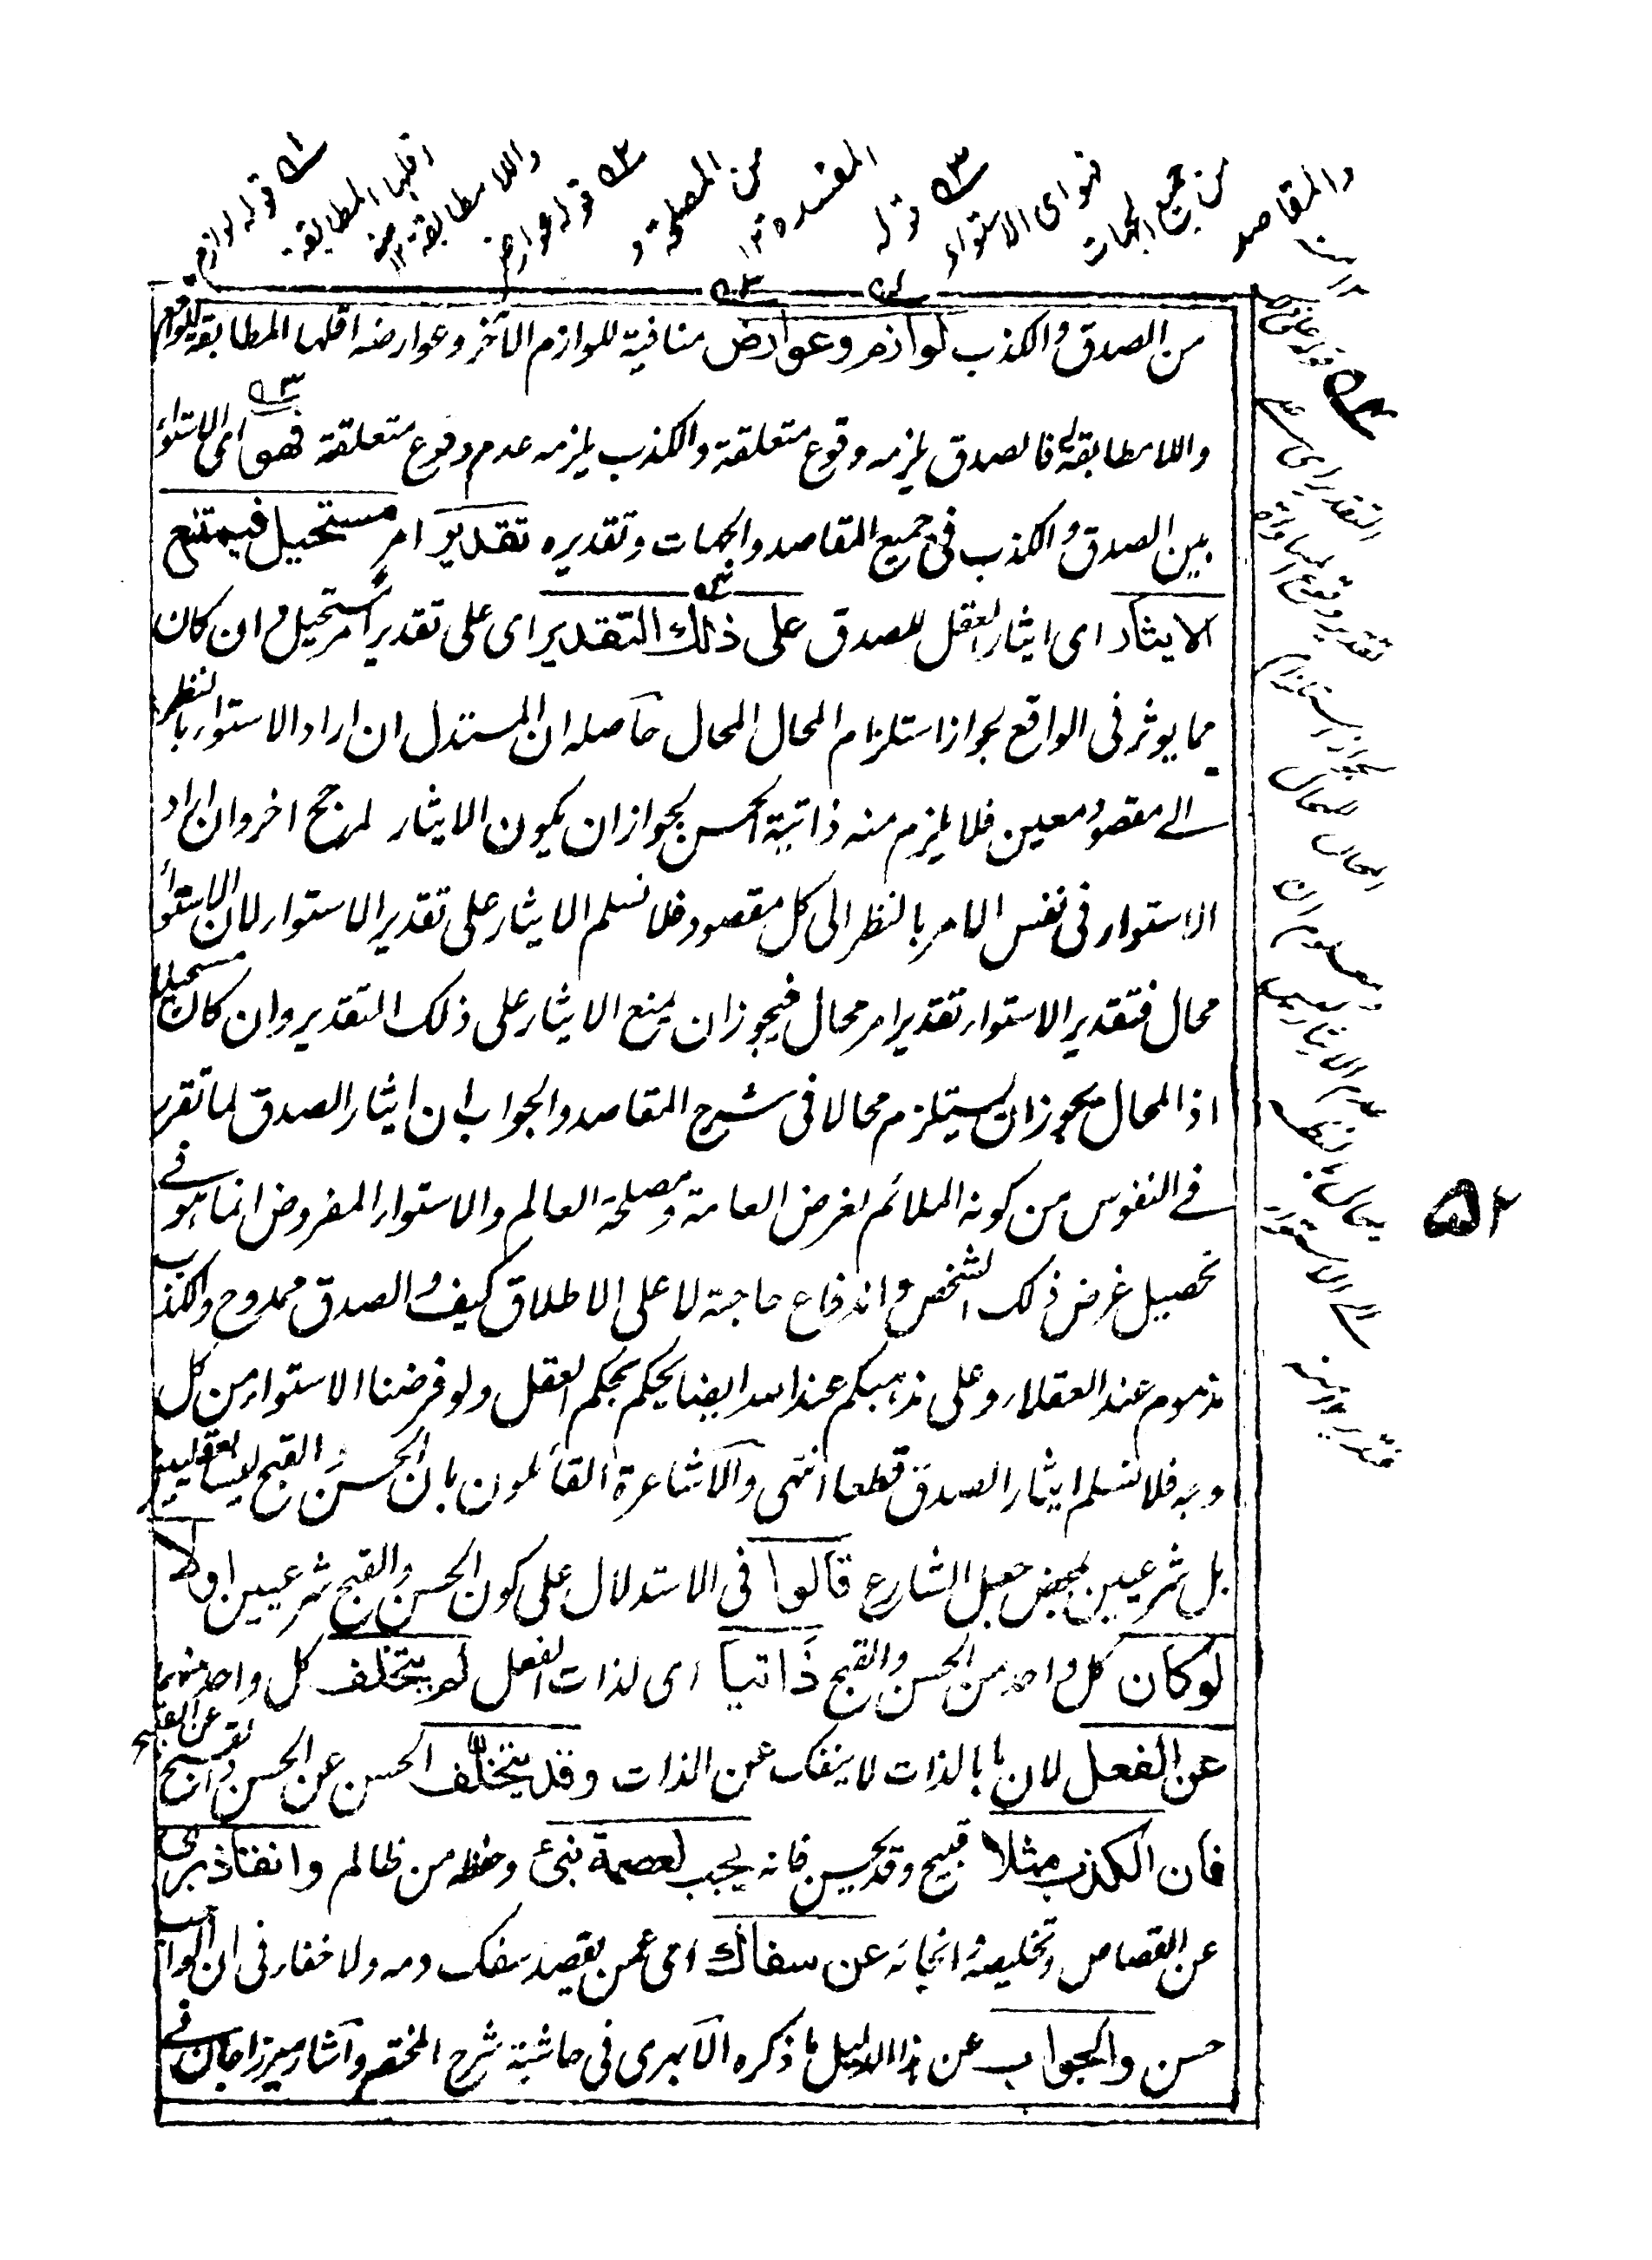 من الصدق والكذب لوازم وعوارض منافية للوازم الآخر وعوارضه اقلها المطابقة للواقع
واللامطابقة له فالصدق يلزمه وقوع متعلقة والكذب يلزمه عدم وقوع متعلقة فهو اى الاستواء
بين الصدق والكذب فى جميع المقاصد والجهات وتقديره تقدير امر مستحيل فيمتنع
الايثار اى ايثار العقل للصدق على ذلك التقدير اى على تقدير امر مستحيل وان كان
مما يوثر فى الواقع لجواز استلزام المحال المحال حاصله ان المستدل ان اراد الاستواء بالنظر
الے مقصود معين فلا يلزم منه ذاتية الحسن لجواز ان يكون الايثار لمرجح اخر وان اراد
الاستواء فى نفس الامر بالنظر الى كل مقصود فلا نسلم الايثار على تقدير الاستواء لان الاستواء
محال فتقدير الاستواء تقدير امر محال فيجوز ان يمنع الايثار على ذلك التقدير وان كان مستحيلا
اذ المحال يجوز ان يستلزم محالا فى شرح المقاصد والجواب ان ايثار الصدق لما تقرر
فے النفوس من كونه الملائم لغرض العامة ومصلحة العالم والاستواء المفروض انما هو فے
تحصيل غرض ذلك الشخص واندفاع حاجته لا على الاطلاق كيف والصدق ممدوح والكذب
مذموم عند العقلاء وعلى مذهبكم عند الله ايضا بحكم العقل ولو فرضنا الاستواء من كل
وجه فلا نسلم ايثار الصدق قطعا انتهى والاشاعرة القائلون بان الحسن والقبح ليسا عقليين
بل شرعيين بمحض جعل الشارع قالوا فى الاستدلال على كون الحسن والقبح شرعيين اولا
لو كان كل واحد من الحسن والقبح ذاتيا اى لذات الفعل لم يتخلف كل واحد منهما
عن الفعل لان ما بالذات لا ينفك عن الذات وقد يتخلف الحسن عن الحسن والقبح عن القبيح
فان الكذب مثلا قبيح وقد يحسن فانه يجب لعصمة نبى وحفظه من ظالم وانقاذ برى
عن القصاص وتخليصه وانجائه عن سفاك اى عمن يقصد سفك دمه ولا خفاء فى ان الواجب
حسن والجواب عن هذا الدليل ما ذكره الابهرى فى حاشية شرح المختصر واشار ميرزا جان فے
قوله لوازم
اقلها المطابقة
واللامطابقة ١٢ منه
قوله عوارض
من المصلحة و
المفسدة ١٢
قوله
فهو اى الاستواء
من جميع الجهات
والمقاصد
٥٢